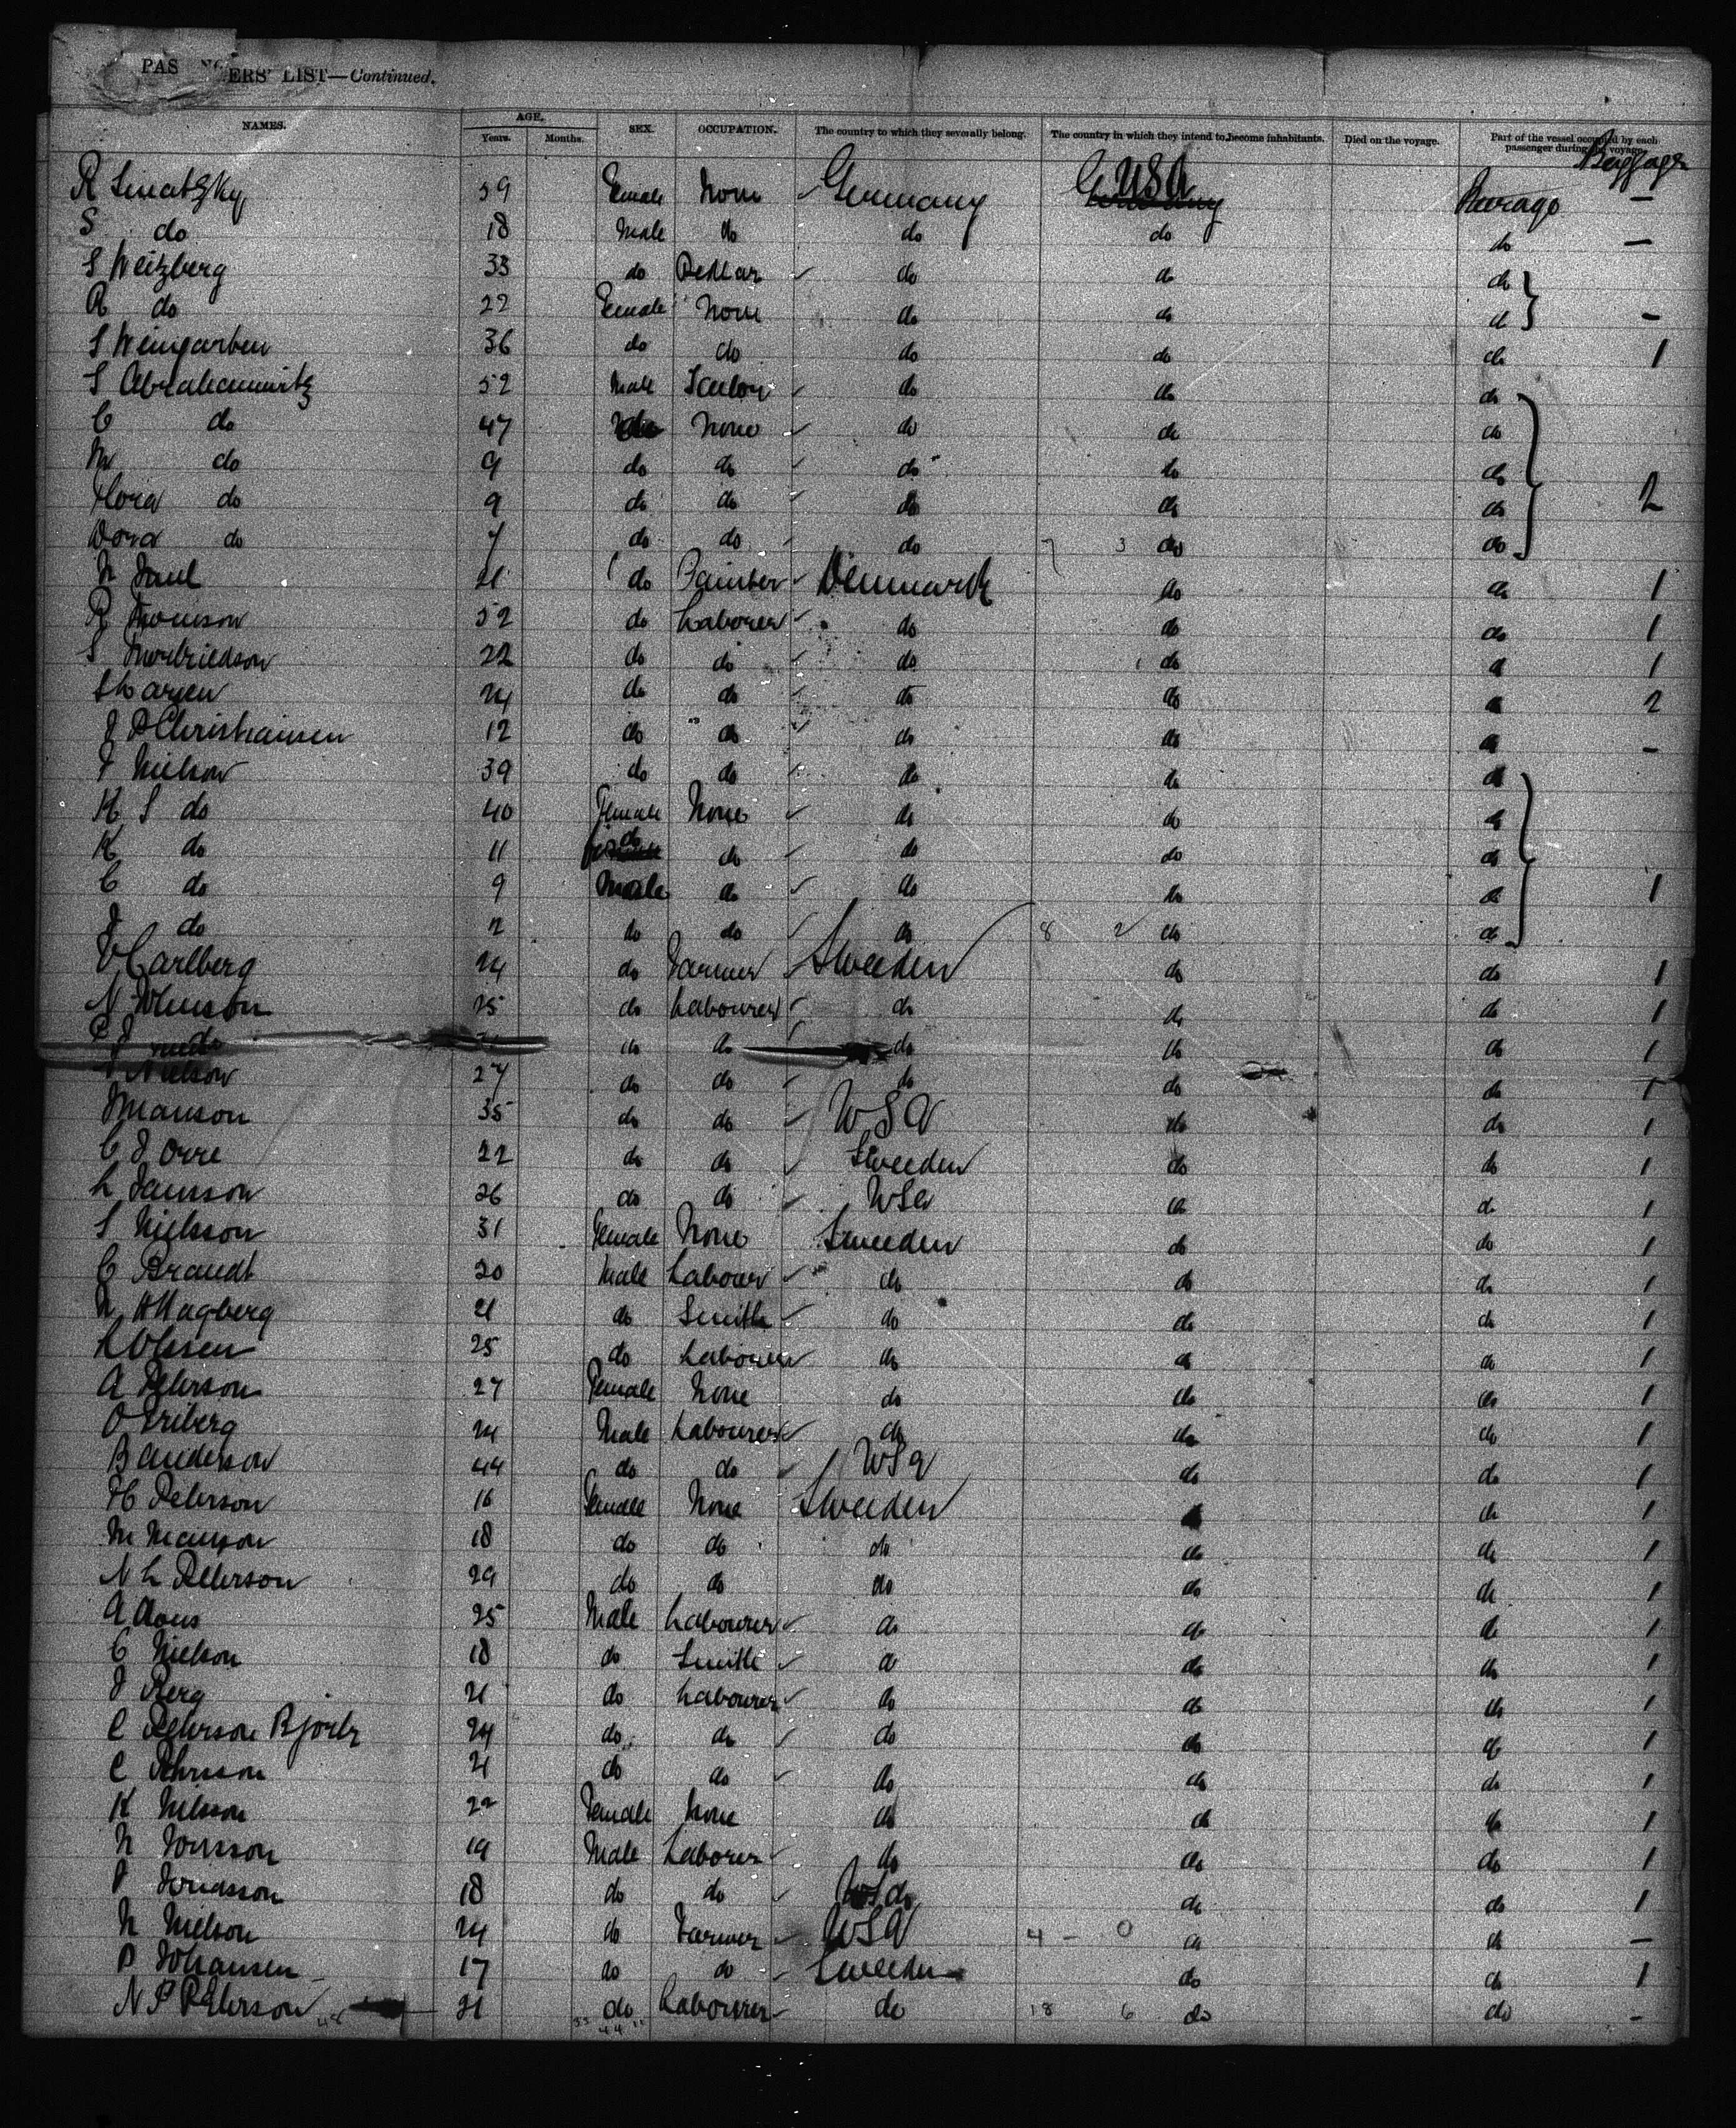 PAS ERS' LIST—Continued.
NAMES. AGE. Years. Months. SEX. OCCUPATION. The country to which they severally belong. The country in which they intend to become inhabitants. Died on the voyage. Part of the vessel occupied by each passenger during the voyage. Baggage
R 59 Female None Germany USA —
S do 18 Male do do do do —
S Weitzberg 33 do Pedlar do do do
R do 22 Female None do do do —
S Weingarten 36 do do do do do 1
S 52 Male Tailor do do do
C do 47 None do do do
M do 9 do do do do do
Flora do 9 do do do do do 2
Dora do 7 do do do 7 3 do do
N 21 do Painter Denmark do do 1
52 do Laborer do do do 1
S 22 do do do do do 1
24 do do do do do 2
J P Christiansen 12 do do do do do —
J Nielson 39 do do do do do
K S do 40 Female None do do do
K do 11 do do do do do
C do 9 Male do do do do 1
J do 2 do do do 8 2 do do
Carlberg 24 do Farmer Sweeden do do 1
N Johnson 25 do Labourer do do do 1
P J do do do do do 1
Nielson 27 do do do do do 1
Manson 35 do do USA do do 1
C J Orre 22 do do Sweeden do do 1
L Jansson 26 do do USA do do 1
S Nielsson 31 Female None Sweeden do do 1
C Brandt 20 Male Labour do do do 1
N H Hagberg 21 do Smith do do do 1
L Olesen 25 do Labourer do do do 1
A Peterson 27 Female None do do do 1
O Friberg 24 Male Labourer do do do 1
B Anderson 44 do do USA do do 1
H Peterson 16 Female None Sweeden do do 1
M Manson 18 do do do do do 1
N L Peterson 29 do do do do do 1
A 25 Male Labourer do do do 1
C Nielson 18 do Smith do do do 1
J Berg 21 do Labourer do do do 1
C Peterson 24 do do do do do 1
C Pehrsson 21 do do do do do 1
K Nilsson 22 Female None do do do 1
N Jonsson 19 Male Laborer do do do 1
J Jonasson 18 do do do do do 1
N Nielson 24 do Farmer USA 4 — 0 do do —
P Johansen 17 do do Sweeden do do 1
N P Peterson 21 do Labourer do 18 6 do do —